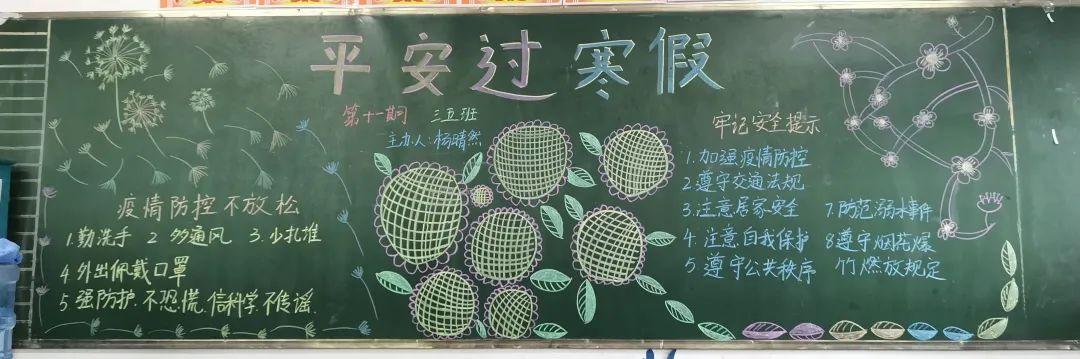 平安过寒假
第十一期 三五班
主办人:杨晴然
疫情防控不放松
1.勤洗手 2 多通风 3.少扎堆
4 外出佩戴口罩
5 强防护.不恐慌.信科学.不传谣.
牢记安全提示
1.加强疫情防控
2 遵守交通法规
3.注意居家安全
4.注意自我保护
5 遵守公共秩序
7.防范溺水事件
8遵守烟花爆
竹燃放规定